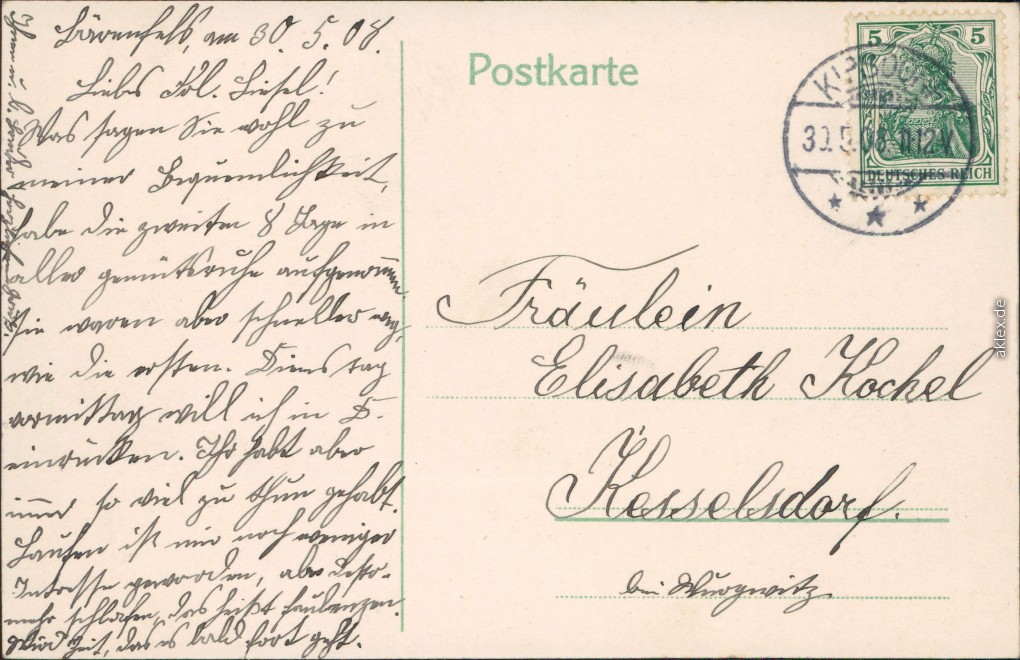 Bärenfels, am 30. 5. 08.
Liebes Frl. Liesel!
Was sagen Sie wohl zu
meiner Bequemlichkeit,
habe die zweiten 8 Tage in
aller gemütsruhe aufgenommen
sie waren aber schneller weg,
wie die ersten. Dienstag
vormittag will ich in D.
einrücken. Ihr habt aber
immer so viel zu thun gehabt.
Laufen ist mir noch weniger
Intresse geworden, aber desto-
mehr schlafen, das heißt faulenzen.
Wird Zeit, das es bald fort geht.
Postkarte
5 5
DEUTSCHES REICH
KIPSDORF
30.5.08 11-12V
Fräulein
Elisabeth Kockel
Kesselsdorf.
bei Wurgwitz
aklex.de